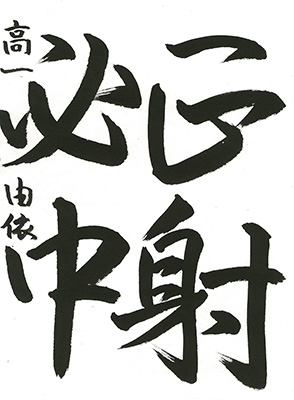 正射
必中
高一 由依